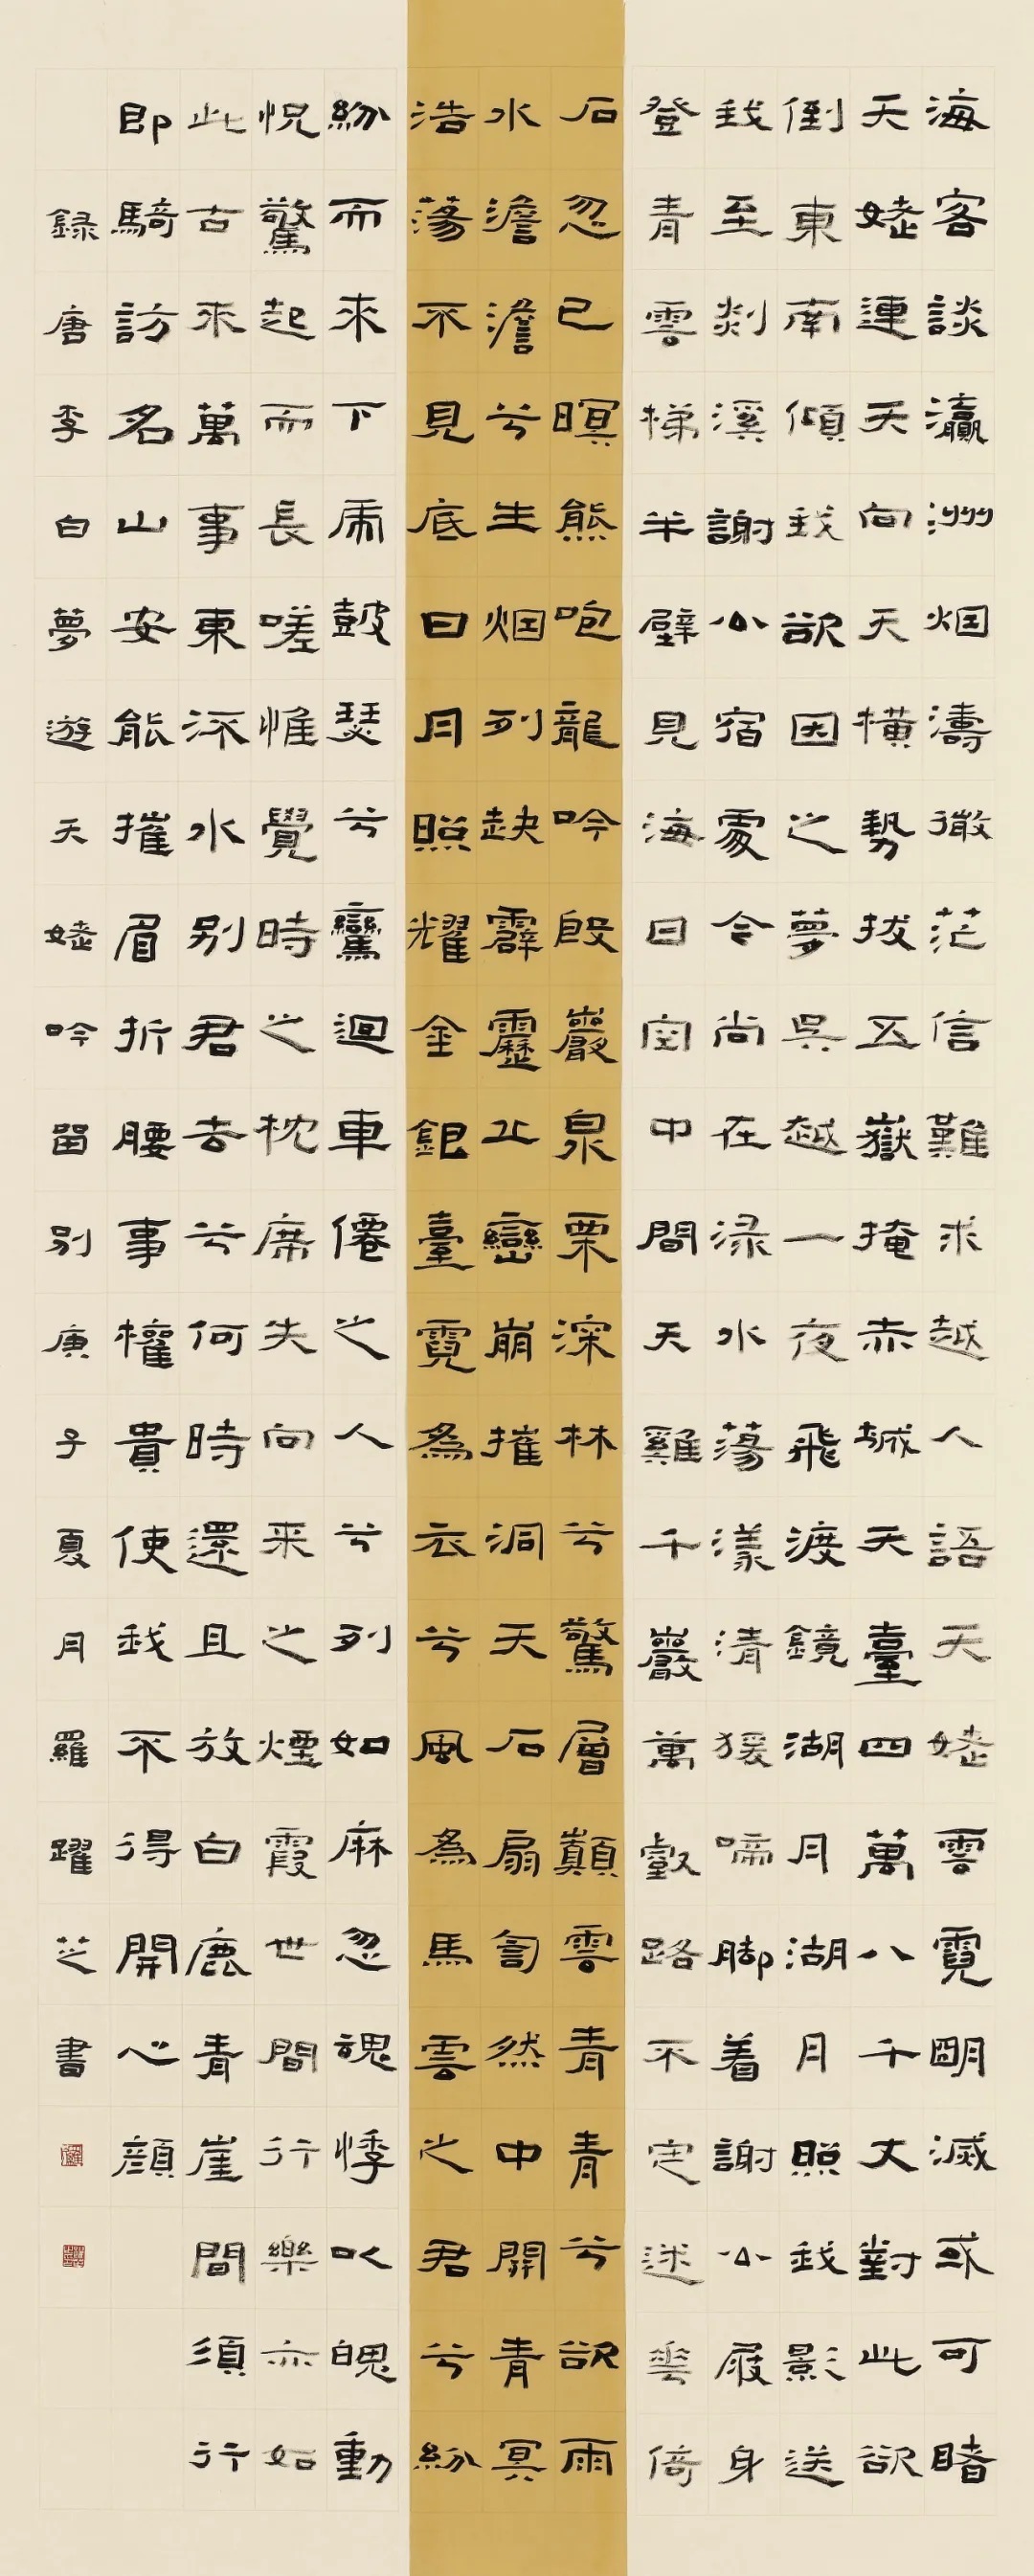 海客談瀛洲烟濤微茫信難求越人語天姥雲霓明滅或可睹
天姥連天向天橫勢拔五嶽掩赤城天臺四萬八千丈對此欲
倒東南傾我欲因之夢吳越一夜飛渡鏡湖月湖月照我影送
我至剡溪謝公宿處今尚在淥水蕩漾清猿啼脚着謝公屐身
登青雲梯半壁見海日空中聞天雞千巖萬壑路不定迷花倚
石忽已暝熊咆龍吟殷巖泉栗深林兮驚層巔雲青青兮欲雨
水澹澹兮生烟列缺霹靂丘巒崩摧洞天石扇訇然中開青冥
浩蕩不見底日月照耀金銀臺霓為衣兮風為馬雲之君兮紛
紛而來下虎鼓瑟兮鸞迴車僊之人兮列如麻忽魂悸以魄動
怳驚起而長嗟惟覺時之枕席失向来之煙霞世間行樂亦如
此古來萬事東流水別君去兮何時還且放白鹿青崖間須行
即騎訪名山安能摧眉折腰事權貴使我不得開心顏
録唐李白夢遊天姥吟留別庚子夏月羅躍芝書